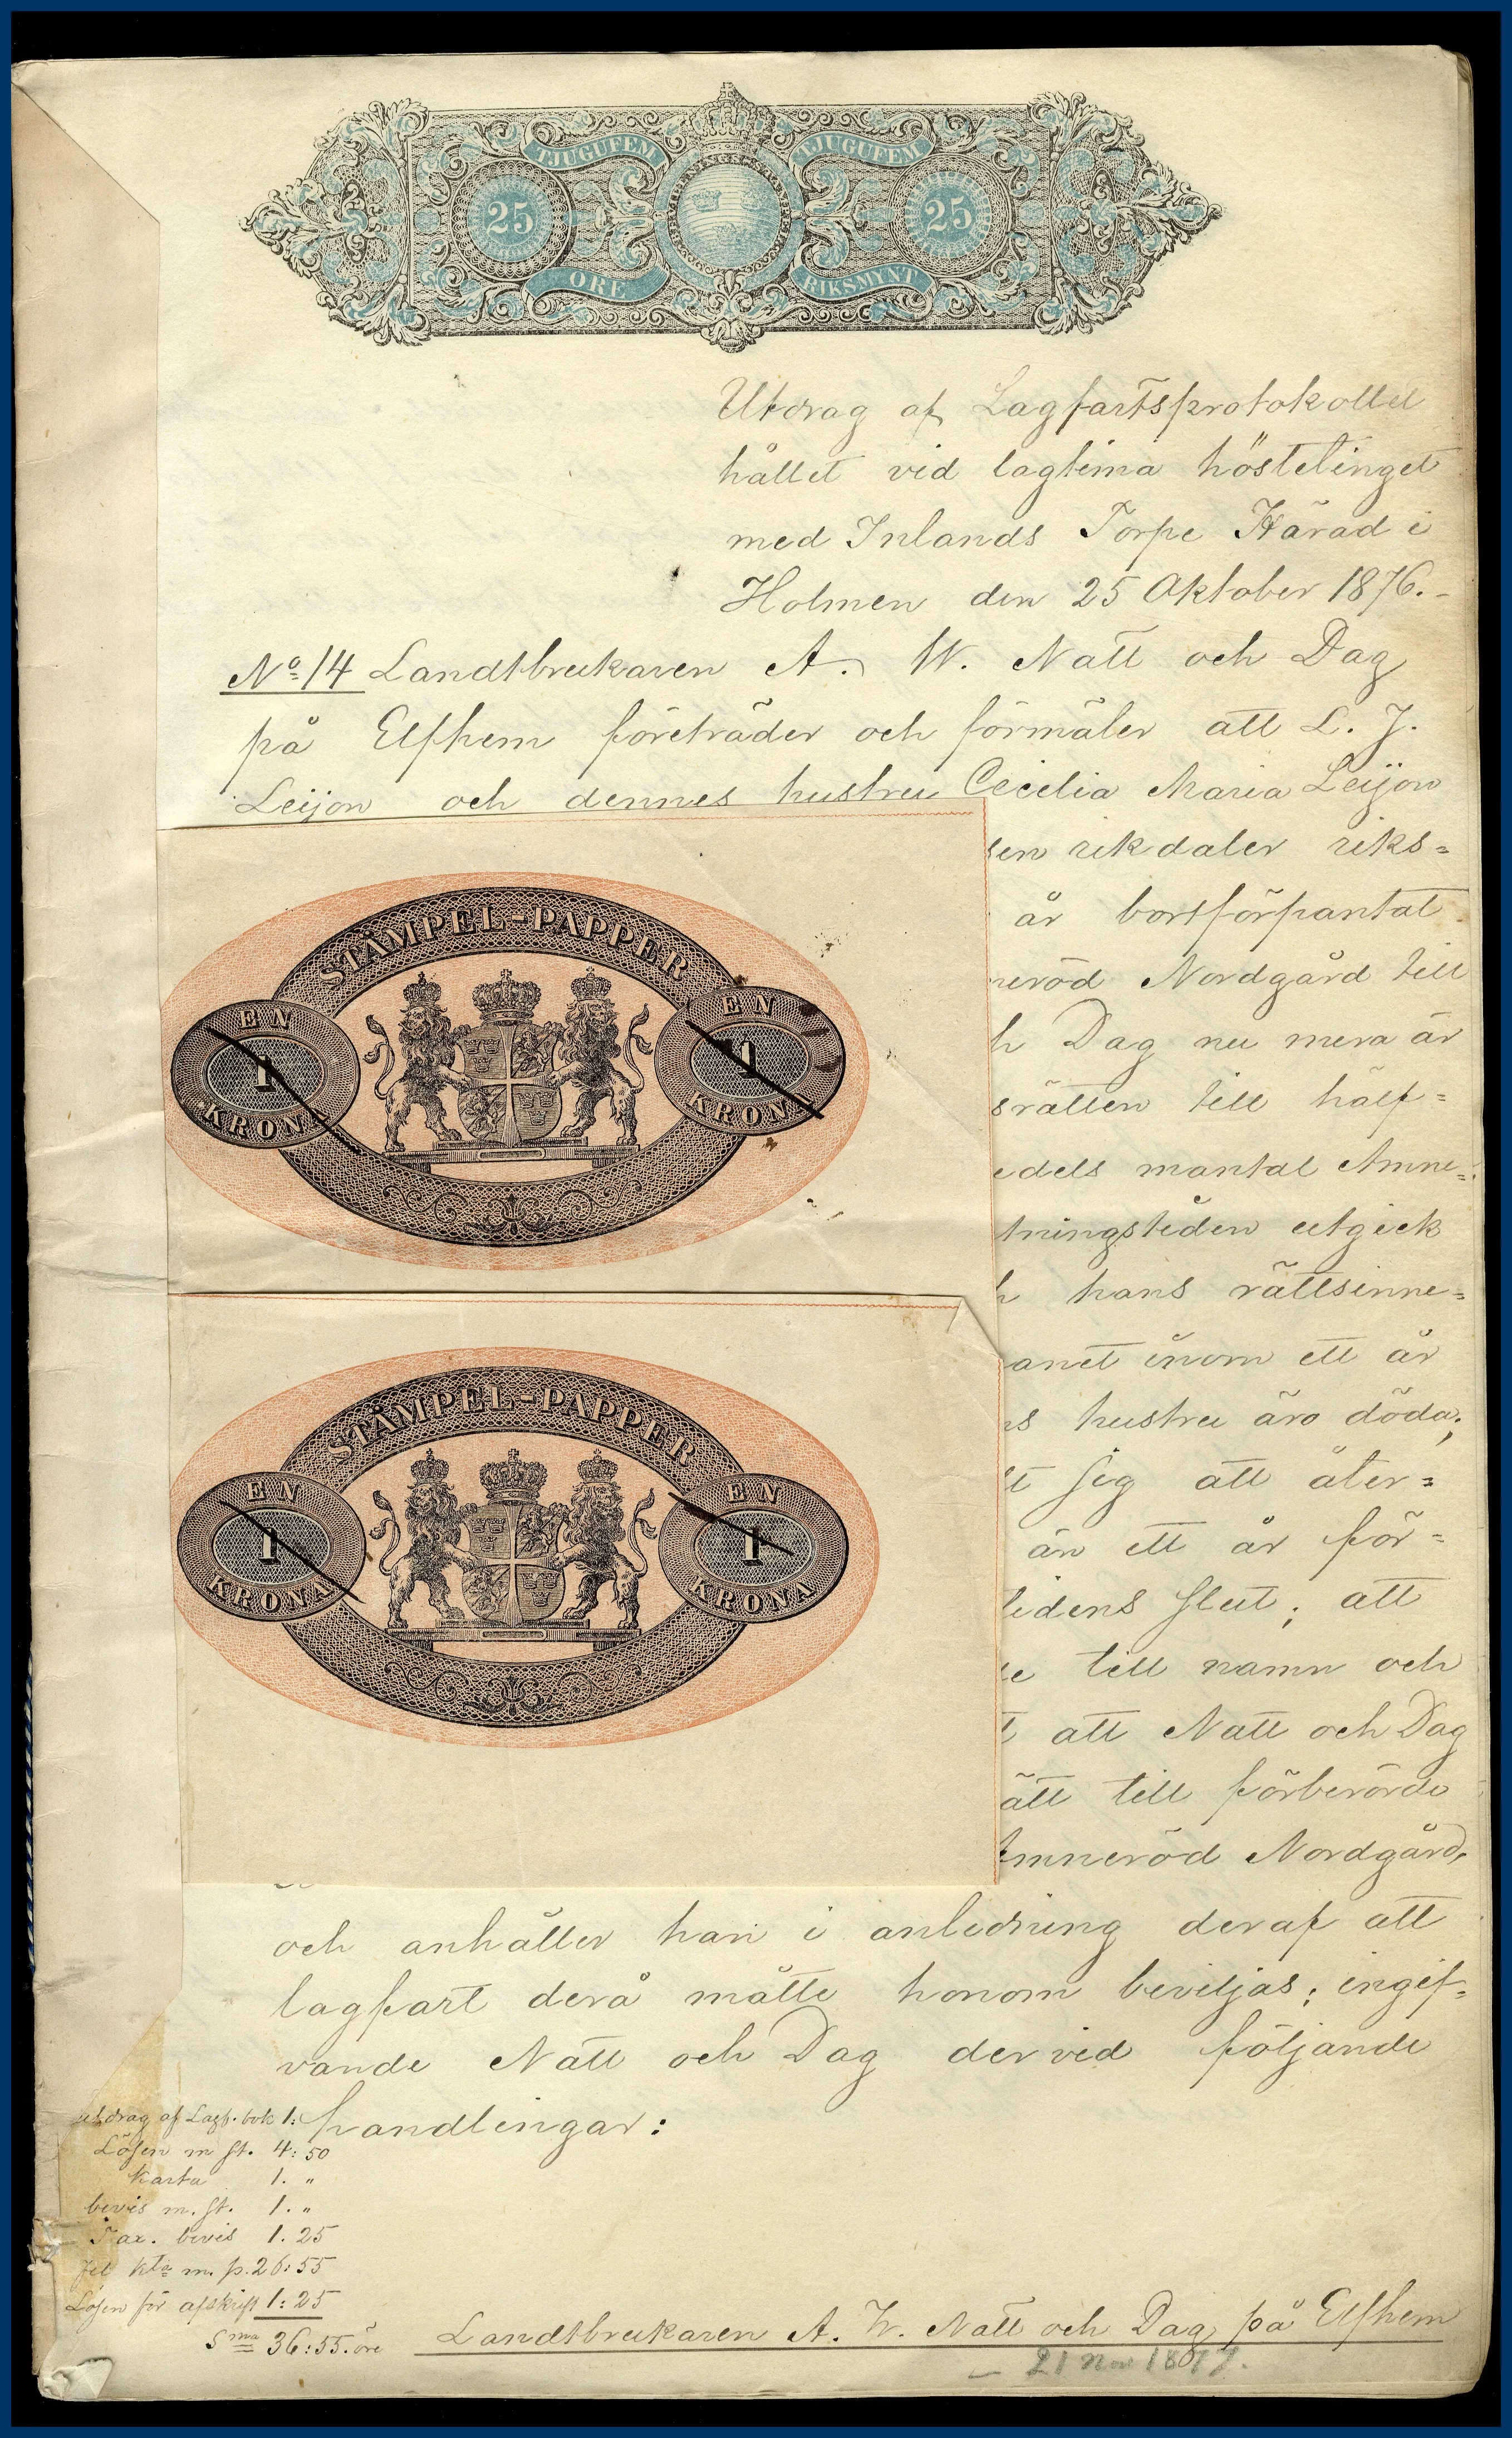 TJUGUFEM TJUGUFEM
25 25
ÖRE RIKSMYNT
Utdrag af Lagfartsprotokollet
hållet vid lagtima höstetinget
med Inlands Torpe Härad i
Holmen den 25 Oktober 1876.-
No 14 Landtbrukaren A. W. Natt och Dag
på Elfhem företräder och förmäler att L. J.
Leijon och dennes hustru Cecilia Maria Leijon
sen rikdaler riks=
är bortförpantat
neröd Nordgård till
h Dag nu mera är
srätten till hälf=
edels mantal Amne=
tningstiden utgick
h hans rättsinne=
anet inom ett år
ns hustru äro döda;
t sig att åter=
än ett år för=
tidens slut; att
se till namn och
t, att Natt och Dag
ätt till förberörde
Amneröd Nordgård,
STÄMPEL-PAPPER
EN 1 KRONA
EN 1 KRONA
STÄMPEL-PAPPER
EN 1 KRONA
EN 1 KRONA
och anhåller han i anledning deraf att
lagfart derå måtte honom beviljas; ingif=
vande Natt och Dag dervid följande
handlingar:
utdrag af Lagf. bok 1:
Lösen m st. 4:50
Karta 1. "
bevis m. st. 1. "
bevis 1.25
m. p. 26:55
Lösen för afskrift 1:25
Sma 36:55. öre
Landtbrukaren A. W. Natt och Dag på Elfhem
— 21 Nov 1877.